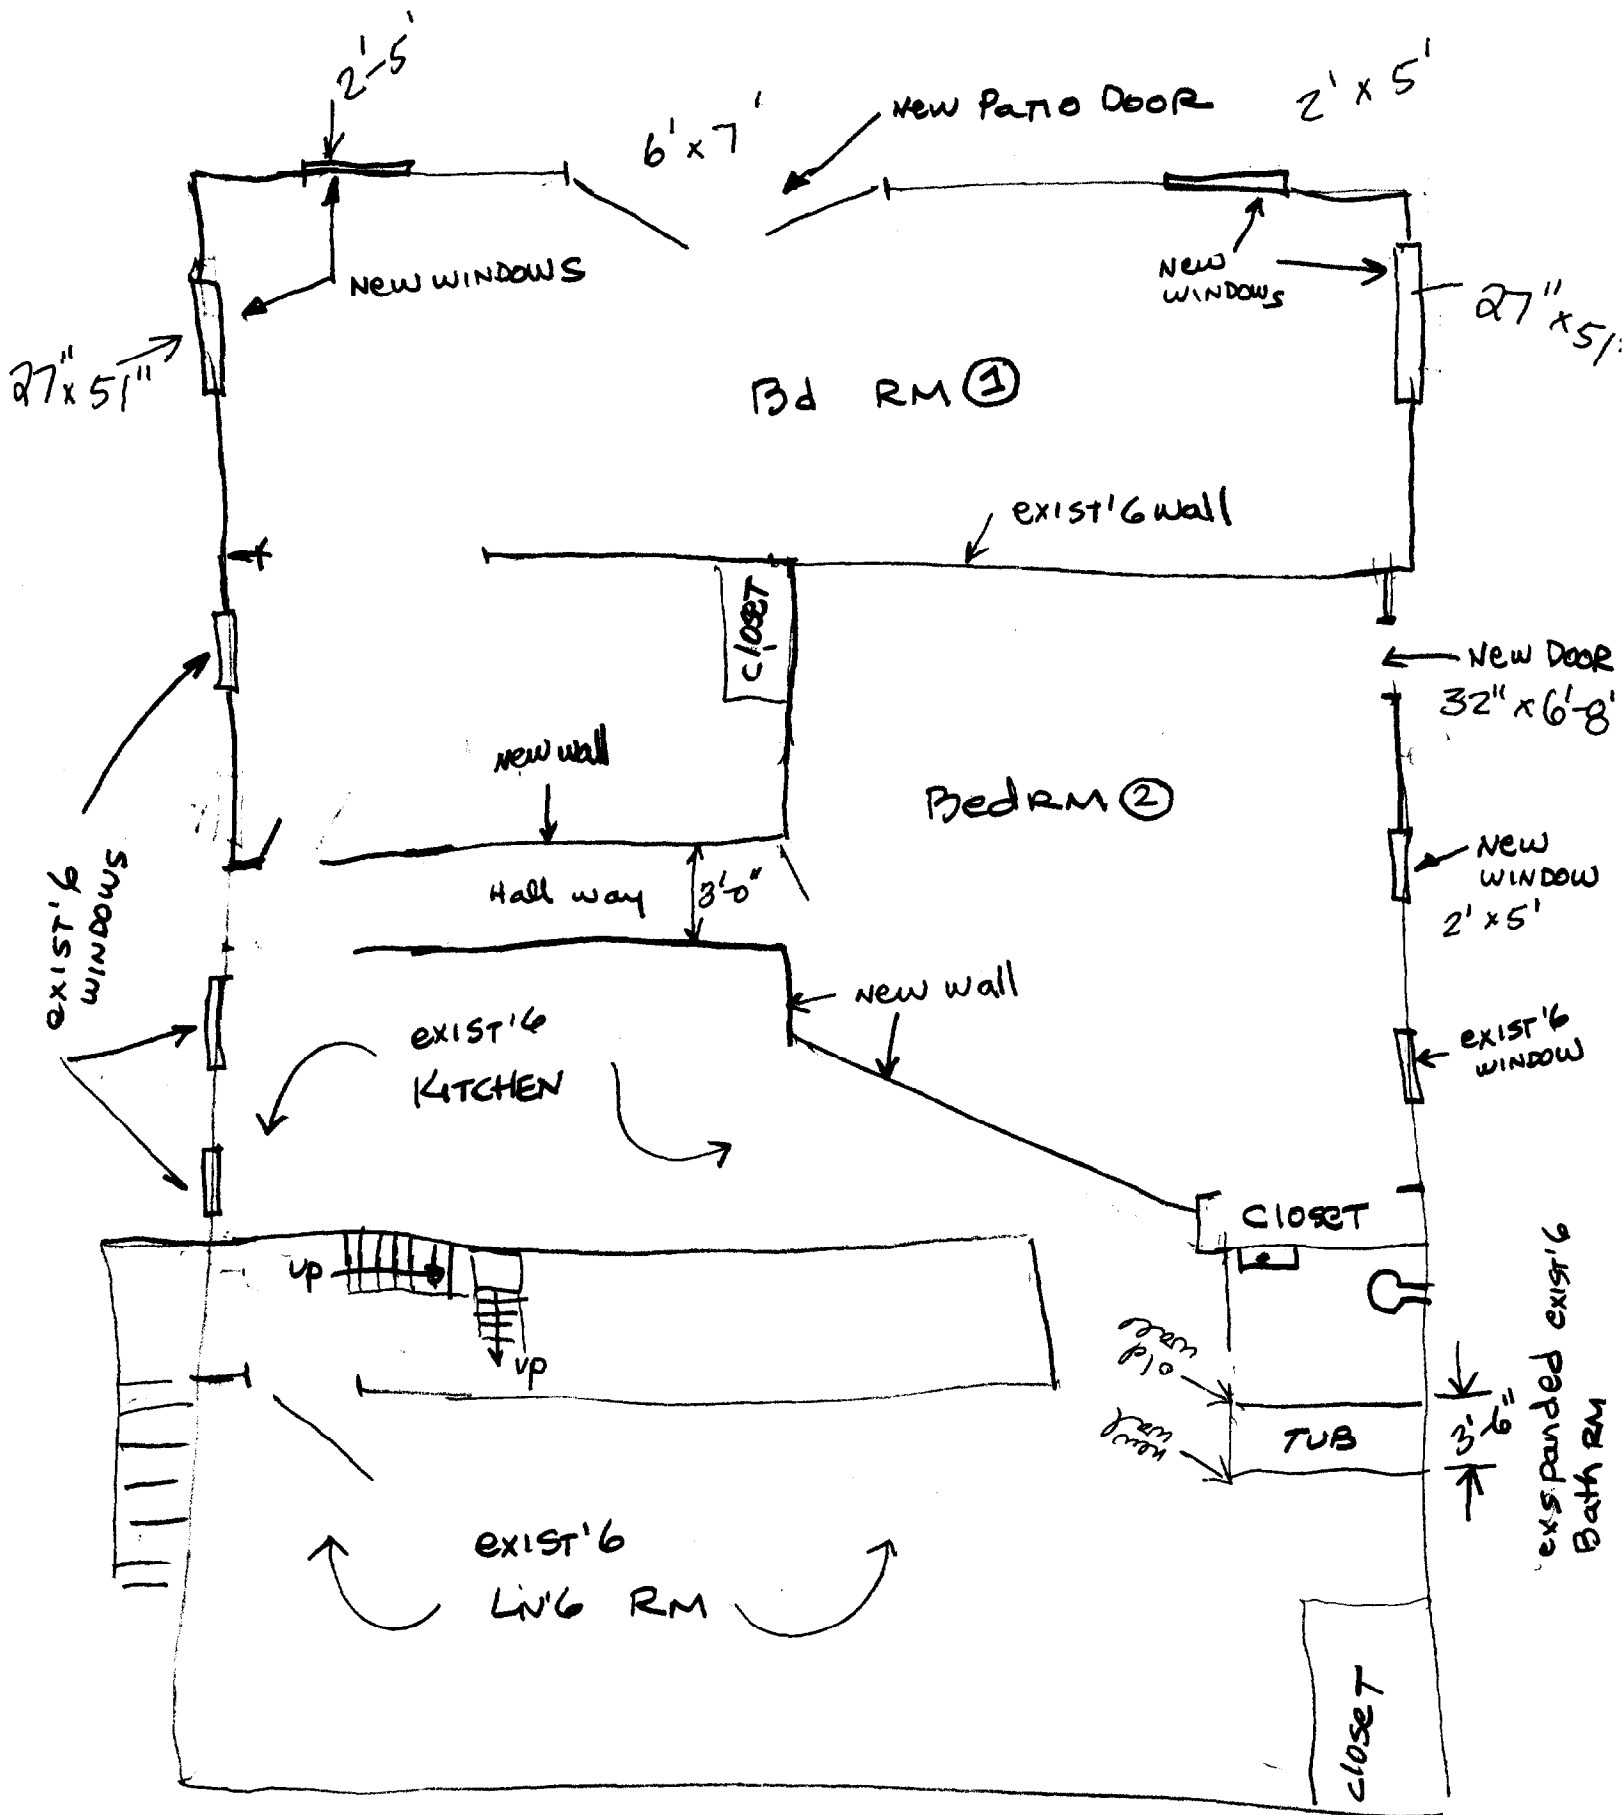 2'-5'
6' x 7'
New Patio Door
2' x 5'
New windows
New
windows
27" x 51"
27" x 51
Bd RM ①
exist'G wall
closet
New Door
32" x 6'-8'
new wall
BedRM ②
Hall way
3'-0"
New
window
2' x 5'
exist'G
windows
New wall
exist'G
Kitchen
exist'G
window
closet
up
up
old
wall
new
wall
TUB
3'-6"
exspanded exist'G
Bath RM
exist'G
Liv'G RM
closet